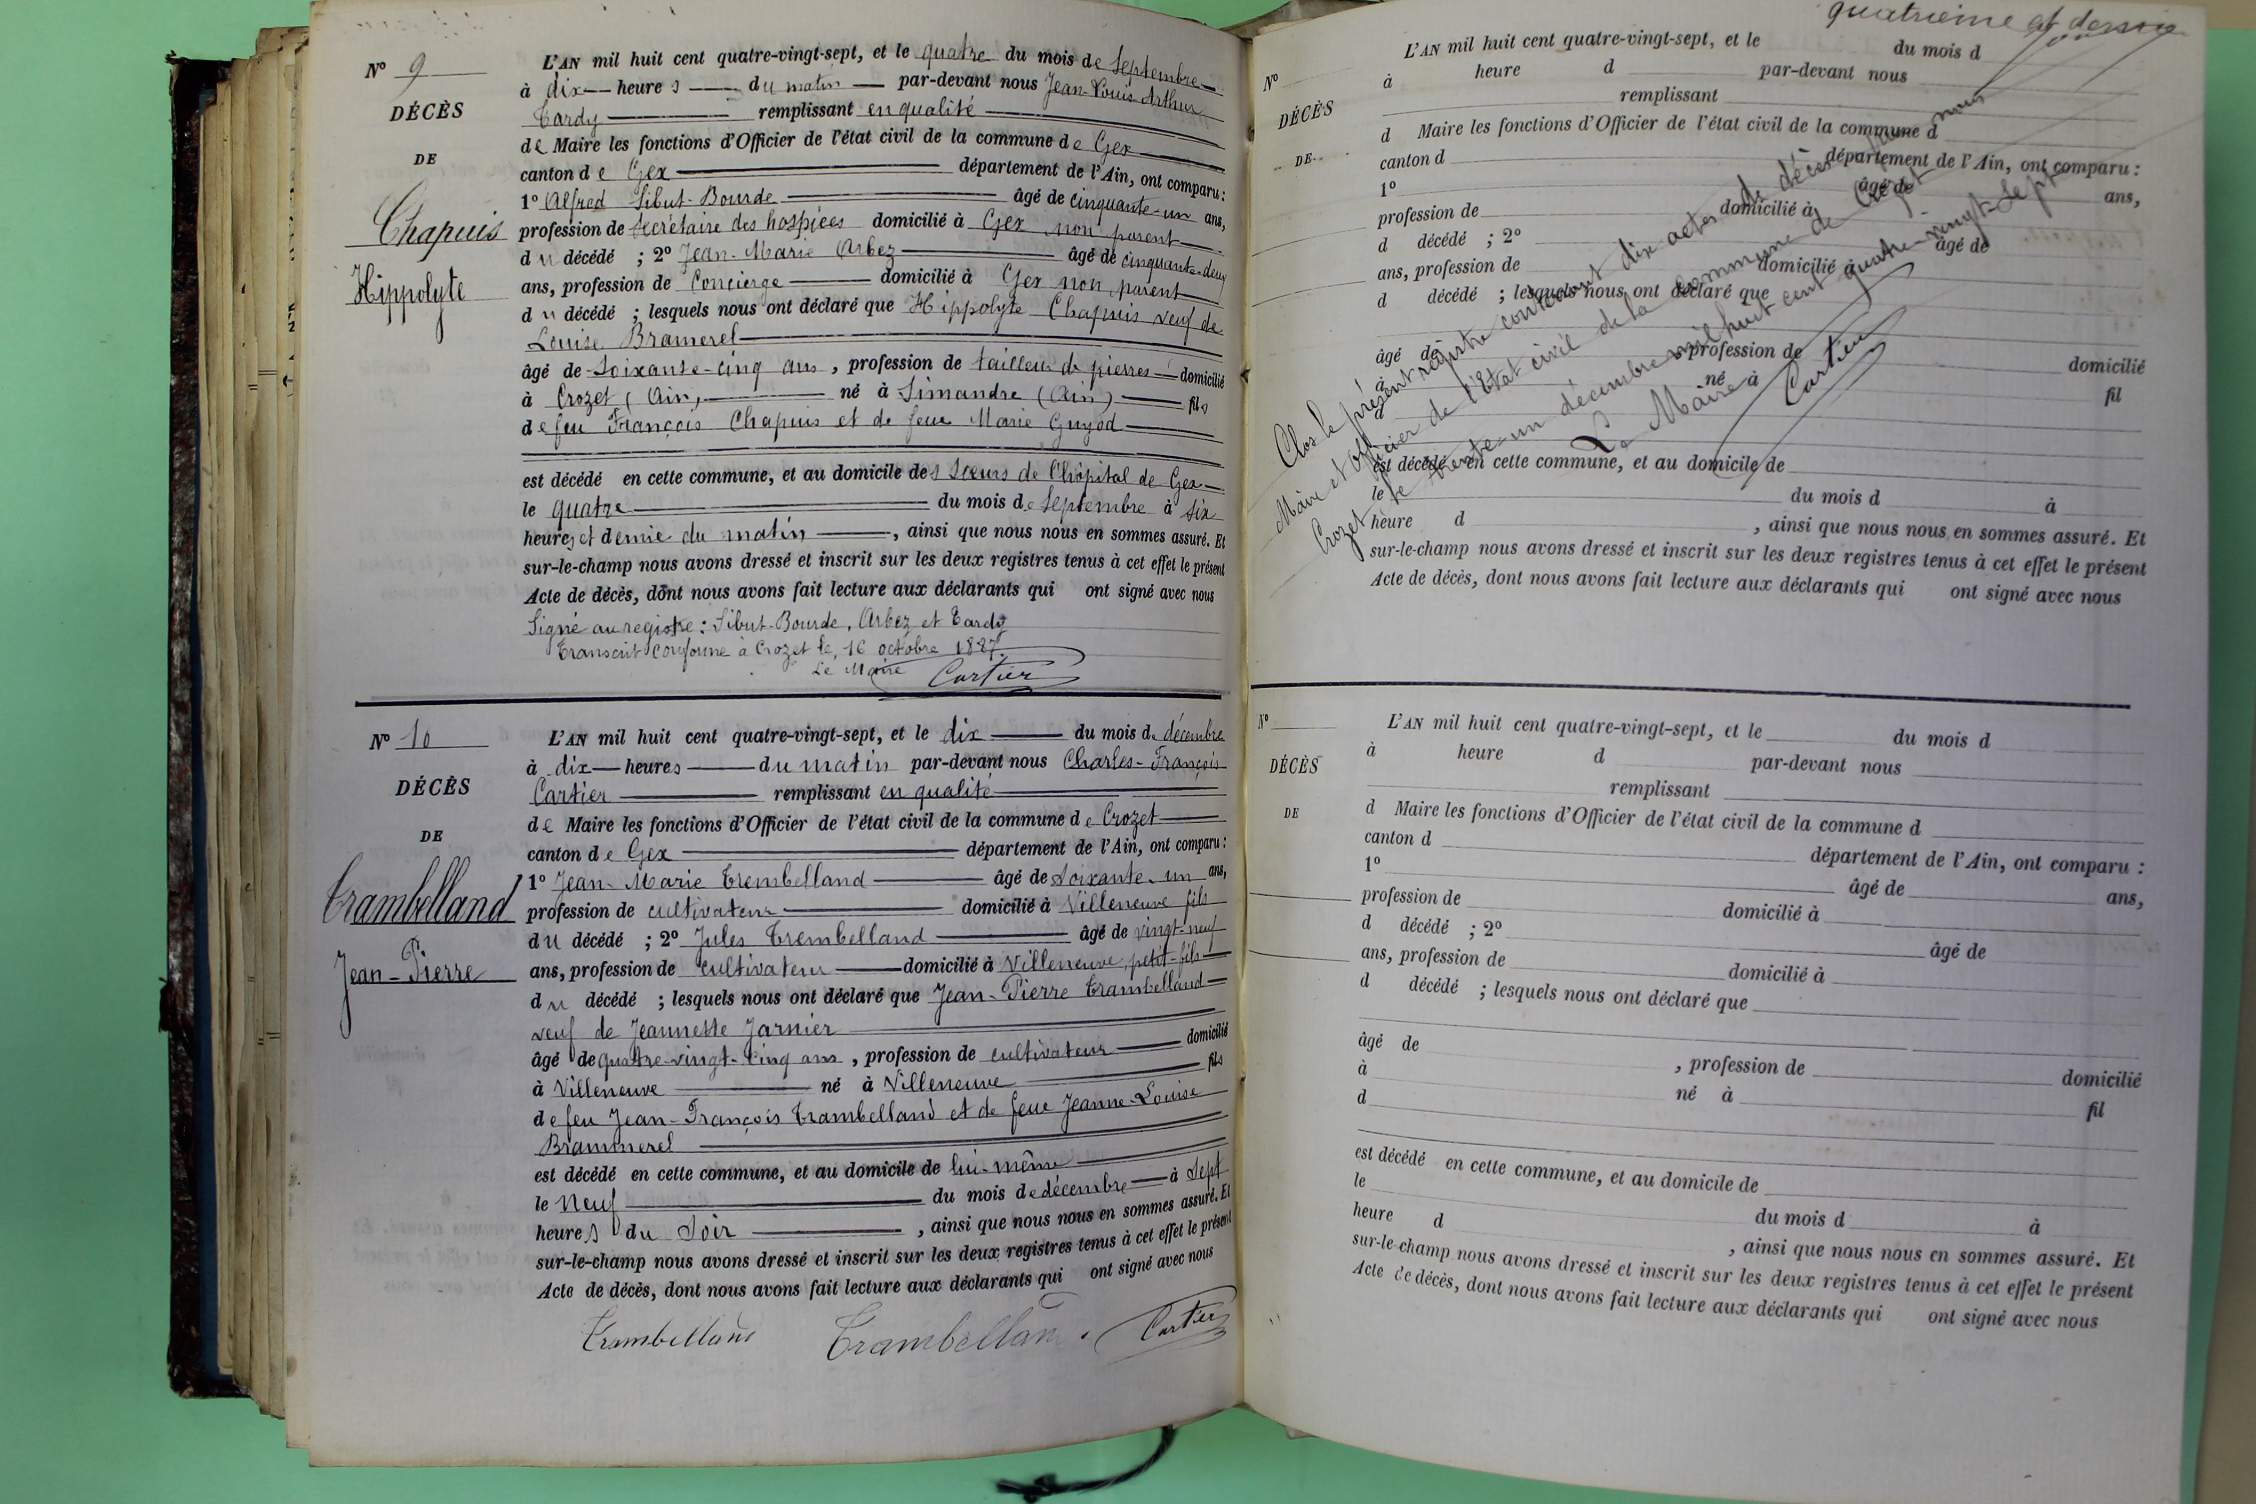 N° 9
DÉCÈS
DE
Chapuis
Hippolyte
L'AN mil huit cent quatre-vingt-sept, et le quatre du mois de Septembre
à dix heures du matin par-devant nous Jean-Louis Arthur
Tardy remplissant en qualité
de Maire les fonctions d'Officier de l'état civil de la commune de Gex
canton de Gex département de l'Ain, ont comparu :
1° Alfred Sibut-Bourde âgé de cinquante-un ans,
profession de Secrétaire des hospices domicilié à Gex non parent
du décédé ; 2° Jean-Marie Arbez âgé de cinquante-deux
ans, profession de Concierge domicilié à Gex non parent
du décédé ; lesquels nous ont déclaré que Hippolyte Chapuis veuf de
Louise Bramerel
âgé de Soixante-cinq ans, profession de tailleur de pierres domicilié
à Crozet (Ain) né à Simandre (Ain) fils
de feu François Chapuis et de feue Marie Guyod
est décédé en cette commune, et au domicile des Sœurs de l'hôpital de Gex
le quatre du mois de Septembre à six
heures et demie du matin, ainsi que nous nous en sommes assuré. Et
sur-le-champ nous avons dressé et inscrit sur les deux registres tenus à cet effet le présent
Acte de décès, dont nous avons fait lecture aux déclarants qui ont signé avec nous
Signé au registre : Sibut-Bourde, Arbez et Tardy
Transcrit conforme à Crozet le, 16 octobre 1887.
Le Maire Cartier
N° 10
DÉCÈS
DE
Trambelland
Jean-Pierre
L'AN mil huit cent quatre-vingt-sept, et le dix du mois de décembre
à dix heures du matin par-devant nous Charles-François
Cartier remplissant en qualité
de Maire les fonctions d'Officier de l'état civil de la commune de Crozet
canton de Gex département de l'Ain, ont comparu :
1° Jean-Marie Trembelland âgé de Soixante-un ans,
profession de cultivateur domicilié à Villeneuve fils
du décédé ; 2° Jules Trembelland âgé de vingt-neuf
ans, profession de cultivateur domicilié à Villeneuve, petit-fils
du décédé ; lesquels nous ont déclaré que Jean-Pierre Trambelland
veuf de Jeannette Jarnier
âgé de quatre-vingt-cinq ans, profession de cultivateur domicilié
à Villeneuve né à Villeneuve fils
de feu Jean-François Trambelland et de feue Jeanne-Louise
Brammerel
est décédé en cette commune, et au domicile de lui-même
le Neuf du mois de décembre à Sept
heures du Soir, ainsi que nous nous en sommes assuré. Et
sur-le-champ nous avons dressé et inscrit sur les deux registres tenus à cet effet le présent
Acte de décès, dont nous avons fait lecture aux déclarants qui ont signé avec nous
Trambelland Trambelland Cartier
quatrième et dernier
N°
DÉCÈS
DE
L'AN mil huit cent quatre-vingt-sept, et le du mois d
à heure d par-devant nous
remplissant
d Maire les fonctions d'Officier de l'état civil de la commune d
canton d département de l'Ain, ont comparu :
1° âgé de ans,
profession de domicilié à
d décédé ; 2° âgé de
ans, profession de domicilié à
d décédé ; lesquels nous ont déclaré que
âgé de profession de domicilié
à né à fil
d
est décédé en cette commune, et au domicile de
le du mois d à
heure d , ainsi que nous nous en sommes assuré. Et
sur-le-champ nous avons dressé et inscrit sur les deux registres tenus à cet effet le présent
Acte de décès, dont nous avons fait lecture aux déclarants qui ont signé avec nous
Clos le présent registre contenant dix actes de décès par nous
Maire et Officier de l'Etat civil de la commune de Crozet
Crozet le trente-un décembre mil huit cent quatre-vingt-sept
Le Maire Cartier
N°
DÉCÈS
DE
L'AN mil huit cent quatre-vingt-sept, et le du mois d
à heure d par-devant nous
remplissant
d Maire les fonctions d'Officier de l'état civil de la commune d
canton d département de l'Ain, ont comparu :
1° âgé de ans,
profession de domicilié à
d décédé ; 2° âgé de
ans, profession de domicilié à
d décédé ; lesquels nous ont déclaré que
âgé de , profession de domicilié
à né à fil
d
est décédé en cette commune, et au domicile de
le du mois d à
heure d , ainsi que nous nous en sommes assuré. Et
sur-le-champ nous avons dressé et inscrit sur les deux registres tenus à cet effet le présent
Acte de décès, dont nous avons fait lecture aux déclarants qui ont signé avec nous